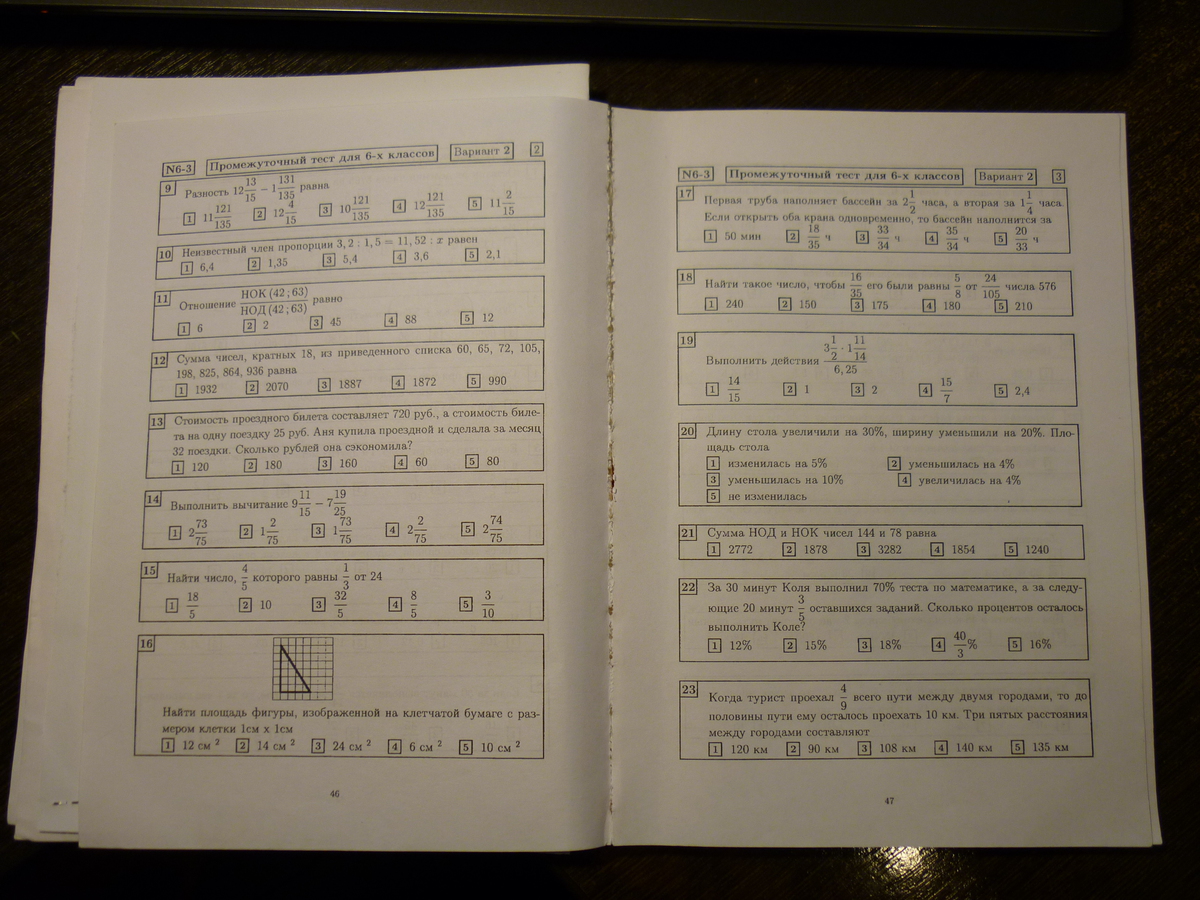 N6-3 Промежуточный тест для 6-х классов Вариант 2 2
9 Разность 12 13/15 − 1 131/135 равна
1 11 121/135 2 12 4/15 3 10 121/135 4 12 121/135 5 11 2/15
10 Неизвестный член пропорции 3,2 : 1,5 = 11,52 : x равен
1 6,4 2 1,35 3 5,4 4 3,6 5 2,1
11 Отношение НОК (42;63)/НОД (42;63) равно
1 6 2 2 3 45 4 88 5 12
12 Сумма чисел, кратных 18, из приведенного списка 60, 65, 72, 105,
198, 825, 864, 936 равна
1 1932 2 2070 3 1887 4 1872 5 990
13 Стоимость проездного билета составляет 720 руб., а стоимость биле-
та на одну поездку 25 руб. Аня купила проездной и сделала за месяц
32 поездки. Сколько рублей она сэкономила?
1 120 2 180 3 160 4 60 5 80
14 Выполнить вычитание 9 11/15 − 7 19/25
1 2 73/75 2 1 2/75 3 1 73/75 4 2 2/75 5 2 74/75
15 Найти число, 4/5 которого равны 1/3 от 24
1 18/5 2 10 3 32/5 4 8/5 5 3/10
16
Найти площадь фигуры, изображенной на клетчатой бумаге с раз-
мером клетки 1см х 1см
1 12 см ² 2 14 см ² 3 24 см ² 4 6 см ² 5 10 см ²
46
N6-3 Промежуточный тест для 6-х классов Вариант 2 3
17 Первая труба наполняет бассейн за 2 1/2 часа, а вторая за 1 1/4 часа.
Если открыть оба крана одновременно, то бассейн наполнится за
1 50 мин 2 18/35 ч 3 33/34 ч 4 35/34 ч 5 20/33 ч
18 Найти такое число, чтобы 16/35 его были равны 5/8 от 24/105 числа 576
1 240 2 150 3 175 4 180 5 210
19 Выполнить действия (3 1/2 · 1 11/14)/6,25
1 14/15 2 1 3 2 4 15/7 5 2,4
20 Длину стола увеличили на 30%, ширину уменьшили на 20%. Пло-
щадь стола
1 изменилась на 5% 2 уменьшилась на 4%
3 уменьшилась на 10% 4 увеличилась на 4%
5 не изменилась
21 Сумма НОД и НОК чисел 144 и 78 равна
1 2772 2 1878 3 3282 4 1854 5 1240
22 За 30 минут Коля выполнил 70% теста по математике, а за следу-
ющие 20 минут 3/5 оставшихся заданий. Сколько процентов осталось
выполнить Коле?
1 12% 2 15% 3 18% 4 40/3% 5 16%
23 Когда турист проехал 4/9 всего пути между двумя городами, то до
половины пути ему осталось проехать 10 км. Три пятых расстояния
между городами составляют
1 120 км 2 90 км 3 108 км 4 140 км 5 135 км
47